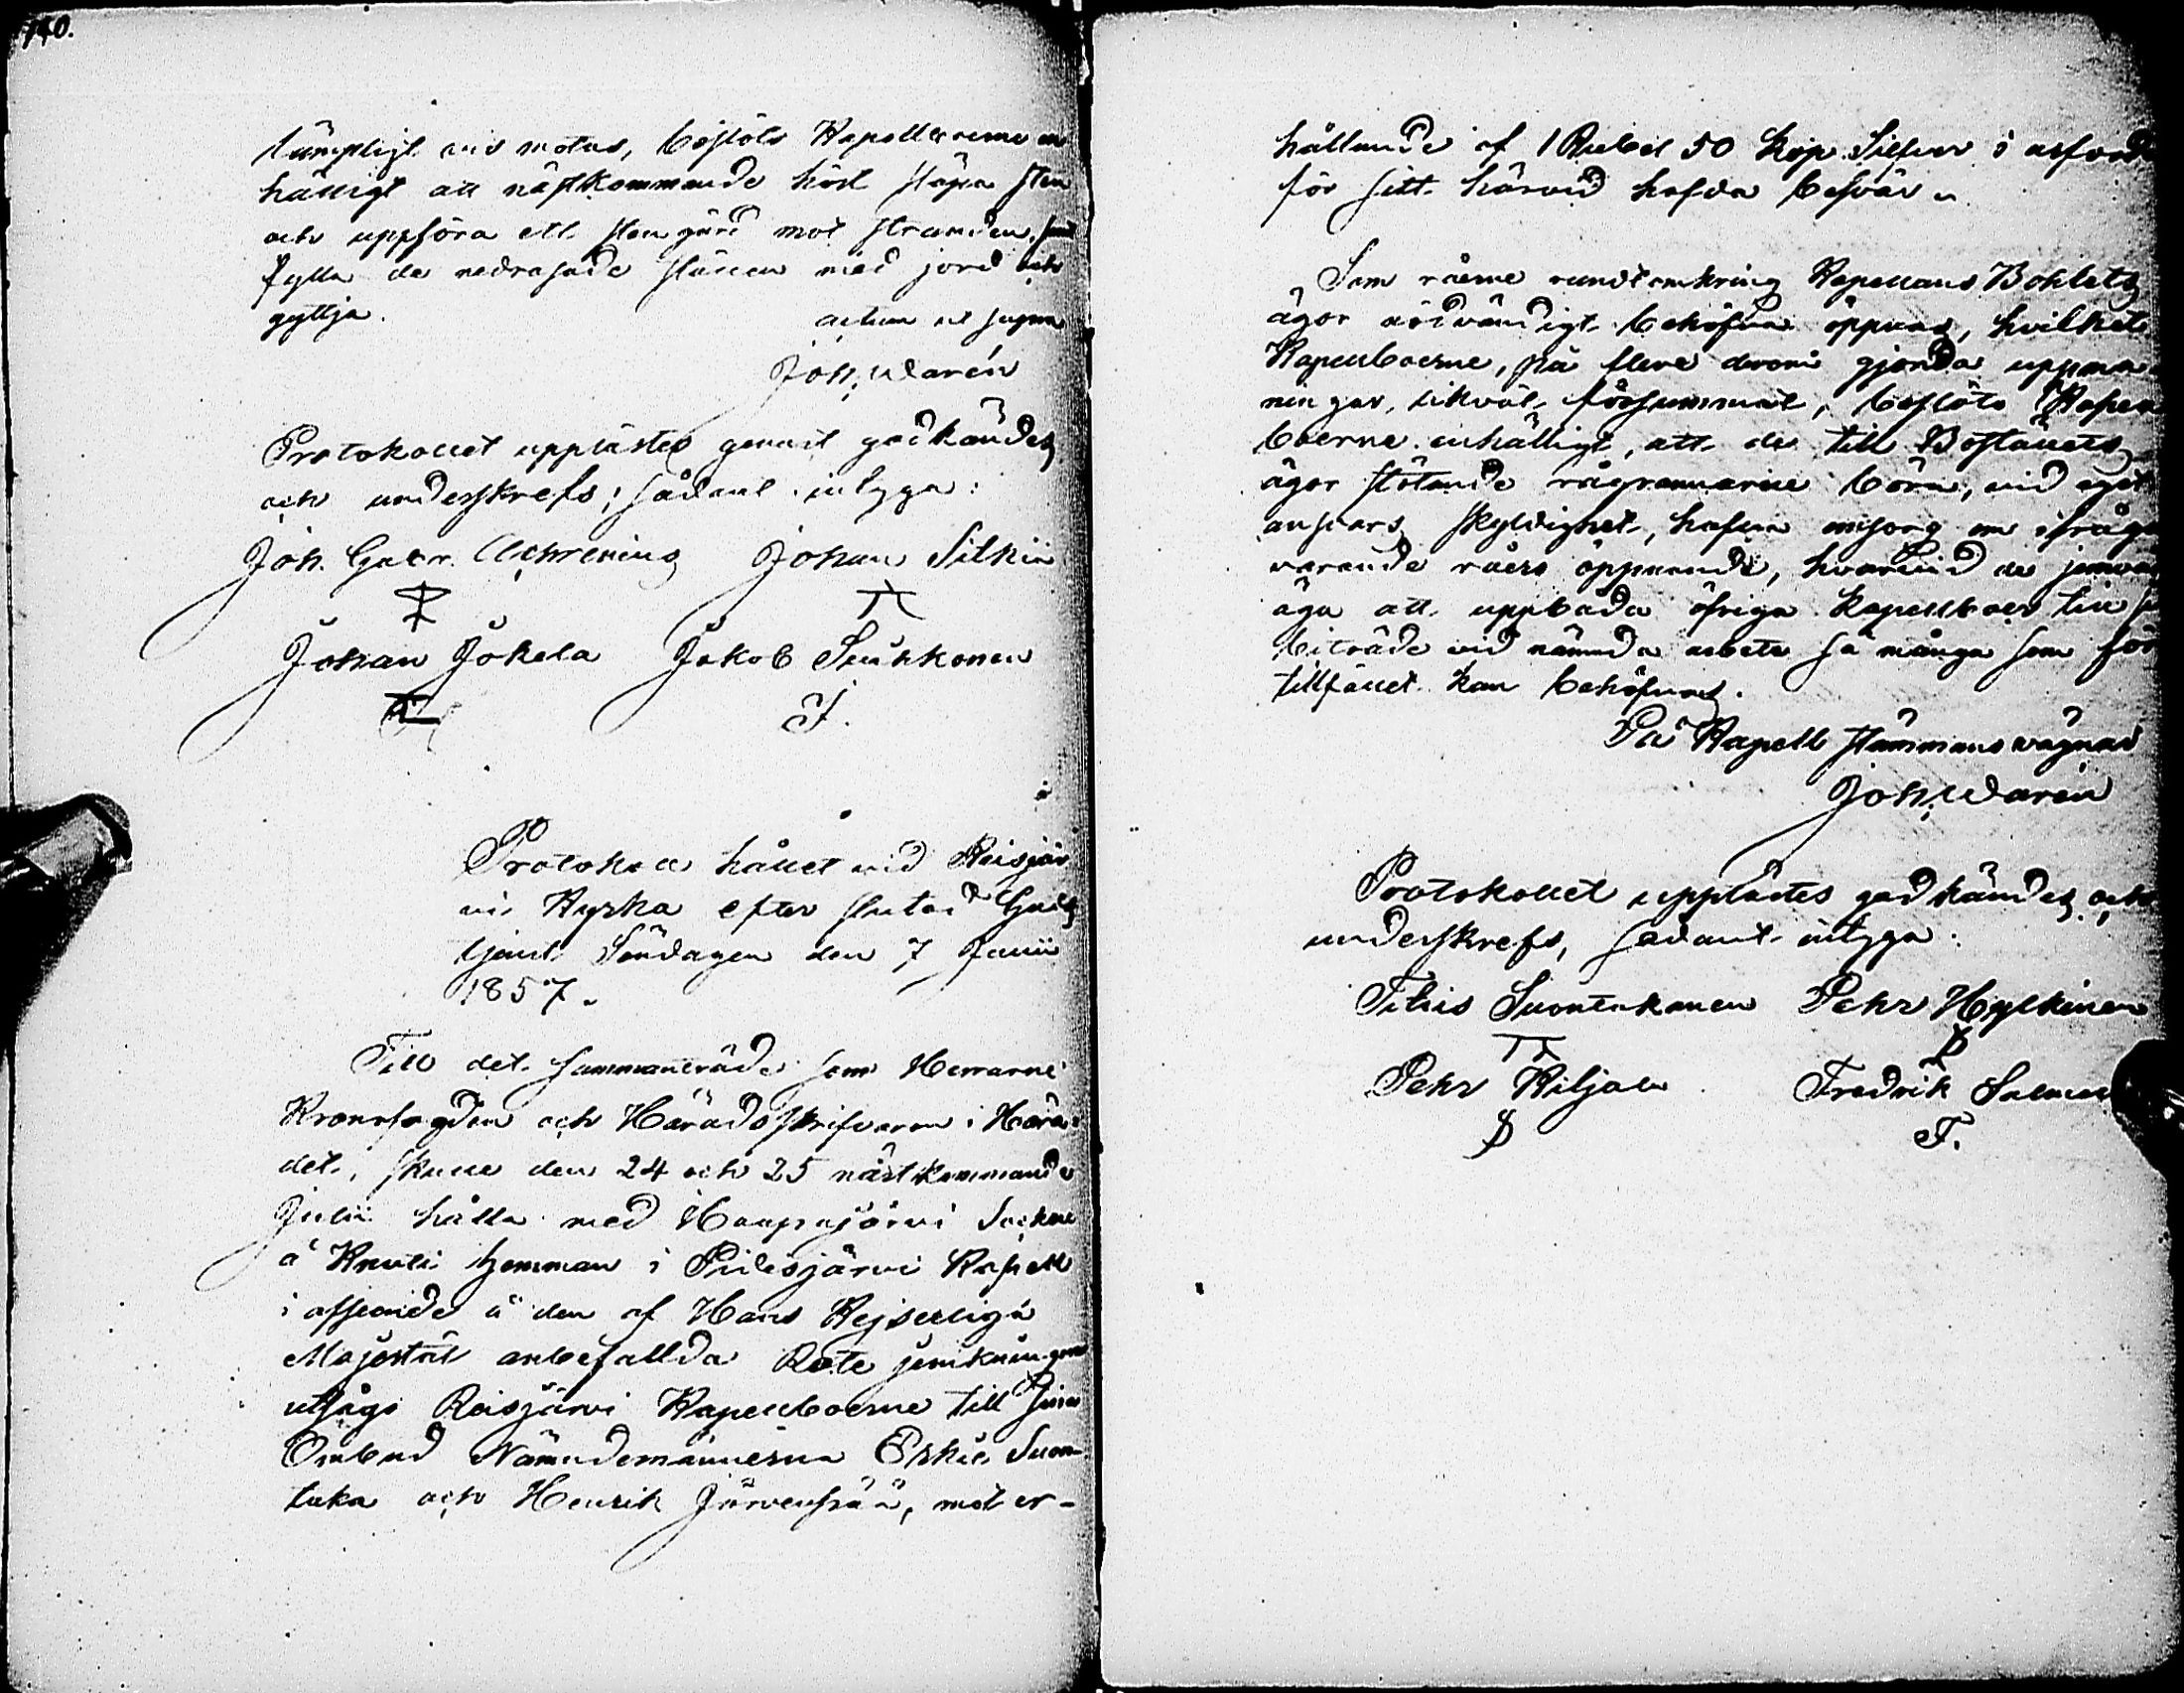 140.
lämpligt vis motas, beslöto Kapellboerne en
hälligt att nästkommande höst släpa sten
och uppföra ett stengärd mot stranden, samt
fylla de nedrasade ställen med jord och
gyttja. actum ut supra
Joh. Warén
Protokollet upplästes genast godkändes
och underskrefs; sådant intyga:
Joh. Gabr. Achrenius Johan Silkii
Johan Jokela Jakob Suuhkonen
J.
Protokoll hållet vid Reisjär
vi Kyrka efter slutad Guds
tjenst Söndagen den 7 Junii
1857.
Till det Sammanträde som Herrarne
Kronofogden och Häradsskrifvaren i Hära-
det, skulle den 24 och 25 nästkommande
Julii hålla med Haapajärvi Socken
å Knuuti hemman i Pidisjärvi Kapell
i afseende å den af Hans Kejserliga
Majestät anbefallda Rote jemkningen
utsågo Reisjärvi Kapellboerne till sina
Ombud Nämndemännerna Erkki Suon-
taka och Henrik Järvenpää, mot er-
hållande af 1 Rubel 50 kop. Silfver i arfvode
för sitt härvid hafda besvär.
Som råerne rundtomkring Kapellans Bohlets
ägor nödvändigt behöfva öppnas, hvilket
Kapellboerne, på flere derom gjorda uppma-
ningar, likväl försummat, beslöto Kapell
boerne enhälligt, att de till Boställets
ägor stötande rågrannarne böra, vid eget
ansvars skyldighet, hafva omsorg om ifråga
varande råers öppnande, hvarvid de jemväl
äga att uppbåda öfriga kapellboer till
biträde vid nämnda arbete så många som för
tillfället kan behöfvas.
På Kapell stämmans vägnar
Joh. Warén
Protokollet upplästes godkändes och
underskrefs, sådant intyga:
Tihis Suontakanen Pehr Hylkinen
Pehr Kiljala Fredrik Salmela
F.